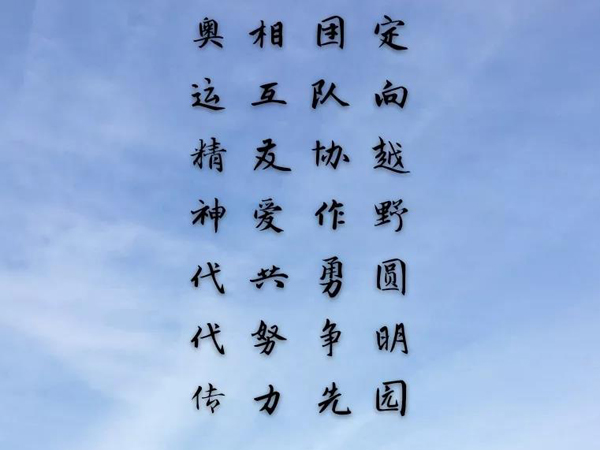 定向越野圆明园
团队协作勇争先
相互友爱共努力
奥运精神代代传